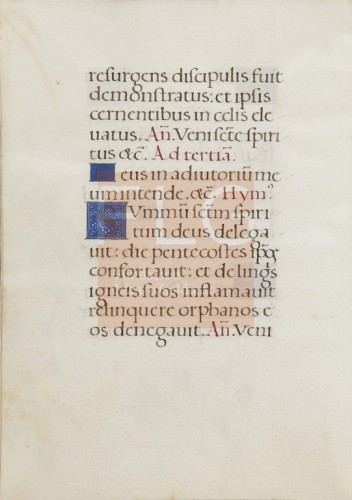 resurgens discipulis fuit
demonstratus: et ipsis
cernentibus in celis ele
uatus. Añ. Veni scte spiri
tus &c̃. Ad tertiã.
Deus in adiutorium me
um intende. &c̃. Hymº
Summũ sctm spiri
tum deus delega
uit: die pentecostes ipõs
confortauit: et de lings
igneis suos inflamauit
relinquere orphanos e
os denegauit. Añ. Veni